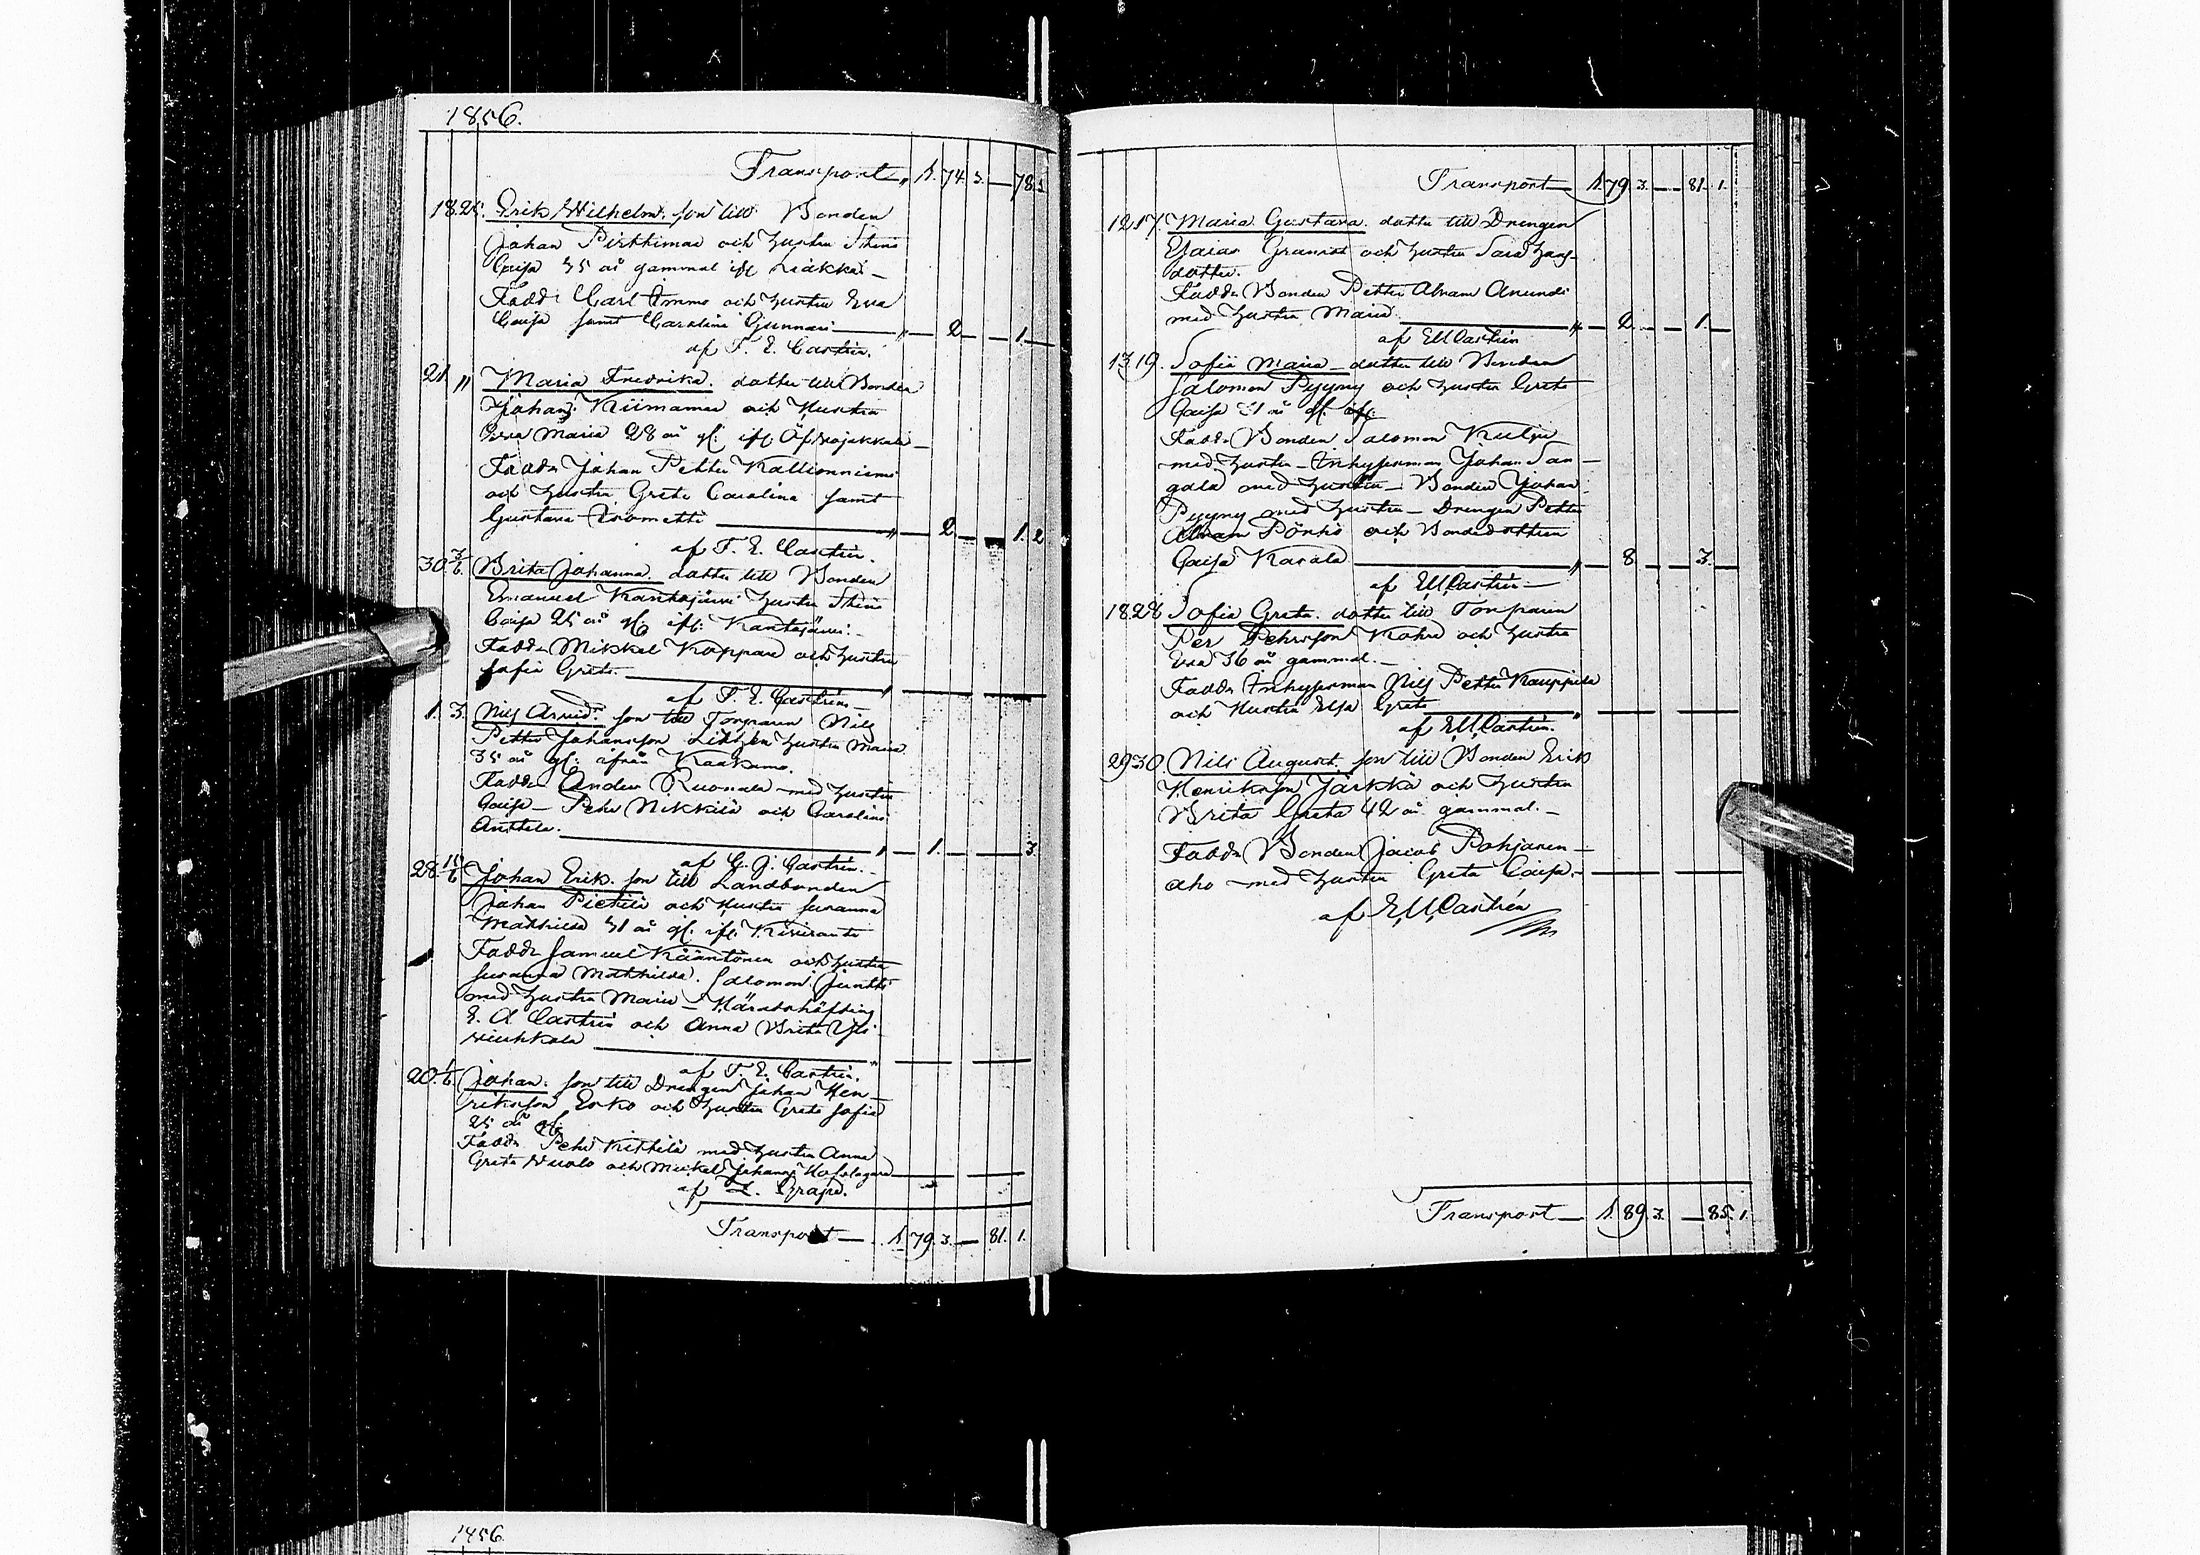 1856.
Transport " 1. 74. 3. — 78. 3.
18. 25. Erik Wilhelm. son till Bonden
Johan Pirttimaa och hustru Stina
Caisa 35 år gammal ifr. Liakka —
Fadd: Carl Ammo och hustru Eva
Caisa samt Carolina Gunnari " — 2. — — 1. —
af F. E. Castrén.
21 " Maria Fredrika. dotter till Bonden
Johan Kiimamaa och Hustru
Eva Maria 28 år gl: ifr.
Fadd: Johan Petter Kallionniemi
och hustru Greta Carolina samt
Gustava " — 2. — 1. 2
af F. E. Castrén.
30. 3/6. Brita Johanna. dotter till Bonden
Emanuel Kantojärvi hustru Stina
Caisa 25 år gl: ifr: Kantojärvi. —
Fadd: Mikkel Koppara och hustru
Sofia Greta. "
af F. E. Castrén —
1. 3. Nils Arvid. son till Torparen Nils
Petter Johansson hustru Maria
35 år gl: ifrån Kaakamo.
Fadd: Anders Ruonala med hustru
Caisa — Pehr Nikkilä och Carolina
Anttila. " — 1. — — 3.
af G. J. Castrén. —
28. 15/6 Johan Erik. son till Landbonden
Johan Pietilä och Hustru Susanna
Mathilda 31 år gl. ifr. Kiviranta
Fadd: Samuel Kääntönen och hustru
Susanna Mathilda. Salomon Juntti
med hustru Maria — Häradshöfding
E. A. Castrén och Anna Brita Yli-
vinkkala "
af F. E. Castrén.
20. 1/6 Johan. son till Drengen Johan Hen-
riksson Erko och hustru Greta Sofia
25 år gl:
Fadd: Pehr Kittilä med hustru Anna
Greta Wuolo och Mickel Johans: Hofslagare
af L. Grape.
Transport — 1. 79. 3. — 81. 1.
Transport — 1. 79. 3. — 81. 1.
12. 17. Maria Gustava. dotter till Drengen
Esaias Granrot och hustru Sara Hans-
dotter.
Fadd: Bonden Petter Abram Anundi
med hustru Maria " — 2. — — 1. —
af E. U. Castrén
13. 19. Sofia Maria — dotter till Bonden
Salomon Pyyny och hustru Greta
Caisa 31 år gl. ifr.
Fadd: Bonden Salomon Kulju
med hustru — Inhysesman Johan San-
gala med hustru — Bonden Johan
Pyyny med hustru — Drengen Petter
Abram Pörhö och Bondedottren
Caisa Karala " — 8. — — 3. —
af E. U. Castrén —
18. 28 Sofia Greta. dotter till Torparen
Per Pehrsson Kahu och hustru
Eva 36 år gammal. —
Fadd: Inhysesman Nils Petter Kauppila
och Hustru Elsa Greta "
af E. U. Castrén.
29. 30. Nils August. son till Bonden Erik
Henriksson Järkkä och hustru
Brita Greta 42 år gammal. —
Fadd: Bonden Jacob Pohjanen-
aho med hustru Greta Caisa. —
af E. U. Castrén
Transport — 1. 89. 3. — 85. 1.
1856